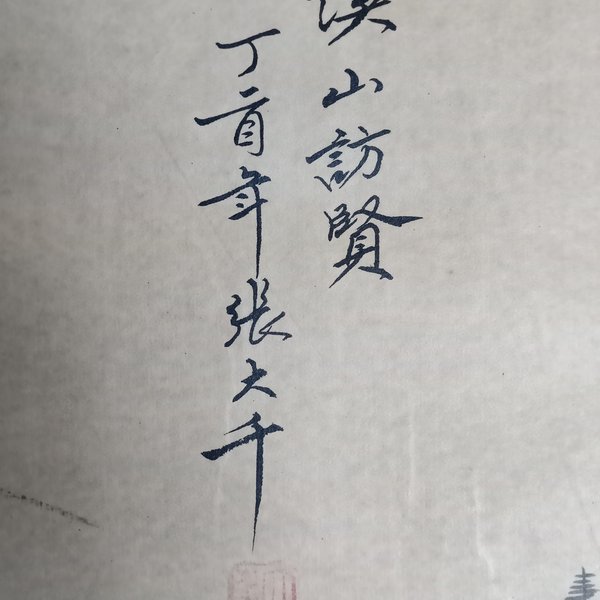 溪山訪賢
丁酉年張大千